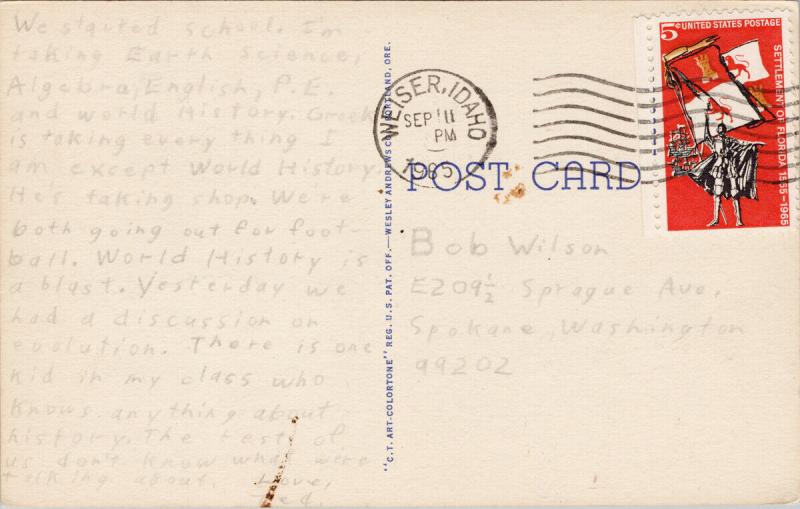 We started school. I'm
taking Earth Science,
Algebra, English, P.E.
and world History. Greek
is taking every thing I
am except World History.
He's taking shop. We're
both going out for foot-
ball. World History is
a blast. Yesterday we
had a discussion on
evolution. There is one
kid in my class who
knows anything about
history. The rest of
us don't know what we're
talking about. Love,
ed.
"C.T. ART-COLORTONE" REG. U.S. PAT. OFF.—WESLEY ANDREWS CO., PORTLAND, ORE.
WEISER, IDAHO
SEP 11
PM
1965
5¢ UNITED STATES POSTAGE
SETTLEMENT OF FLORIDA 1565-1965
POST CARD
Bob Wilson
E209½ Sprague Ave,
Spokane, Washington
99202